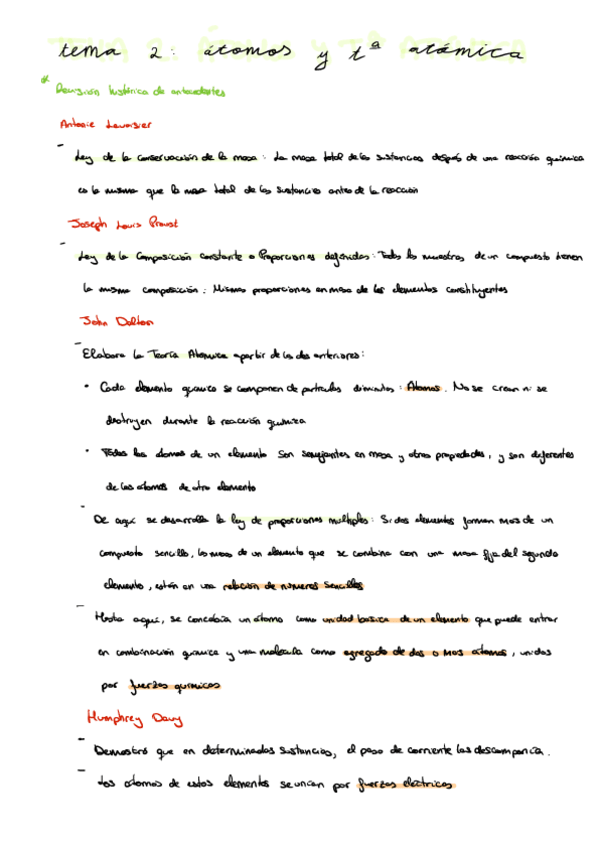 tema 2: átomos y tª atómica
* Revisión histórica de antecedentes
Antoine Lavoisier
- Ley de la conservación de la masa: La masa total de las sustancias después de una reacción química
es la misma que la masa total de las sustancias antes de la reacción
Joseph Louis Proust
- Ley de la Composición constante o Proporciones definidas: Todas las muestras de un compuesto tienen
la misma composición: Mismas proporciones en masa de los elementos constituyentes
John Dalton
- Elabora la Teoría Atómica a partir de las dos anteriores:
• Cada elemento químico se componen de partículas diminutas: Átomos. No se crean ni se
destruyen durante la reacción química
• Todos los átomos de un elemento son semejantes en masa y otras propiedades, y son diferentes
de los átomos de otro elemento
- De aquí se desarrolla la ley de proporciones múltiples: Si dos elementos forman mas de un
compuesto sencillo, las masas de un elemento que se combina con una masa fija del segundo
elemento, están en una relación de números sencillos
- Hasta aquí, se concebía un átomo como unidad básica de un elemento que puede entrar
en combinación química y una molécula como agregado de dos o mas átomos, unidos
por fuerzas químicas
Humphrey Davy
- Demostró que en determinadas sustancias, el paso de corriente las descomponía.
- Los átomos de estos elementos se unían por fuerzas eléctricas